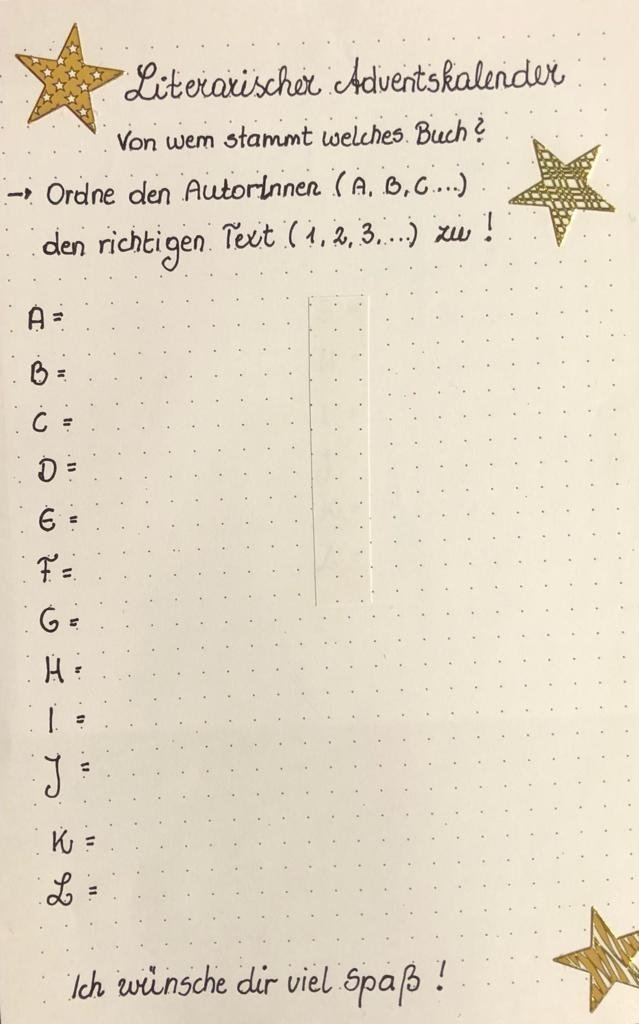 Literarischer Adventskalender
Von wem stammt welches Buch?
→ Ordne den AutorInnen (A, B, C...)
den richtigen Text (1, 2, 3,...) zu!
A =
B =
C =
D =
E =
F =
G =
H =
I =
J =
K =
L =
Ich wünsche dir viel Spaß!